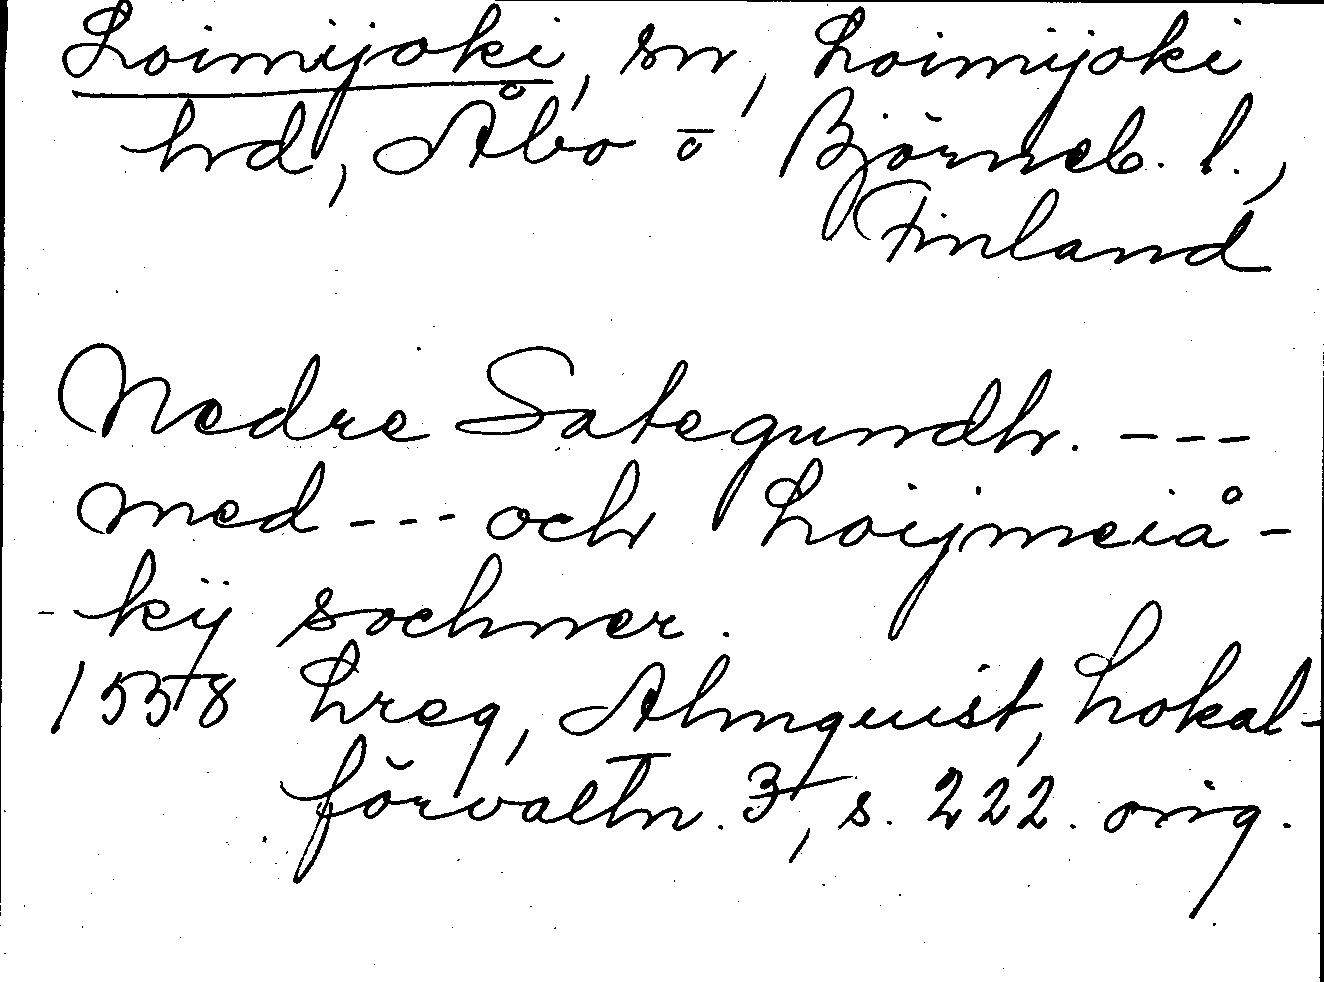 Loimijoki, sn, Loimijoki
hrd, Åbo o Björneb. l.,
Finland
Nedre Sategundh. ---
med --- och Loijmeiå-
-kij sochner.
1558 Lreg, Almquist, Lokal-
förvaltn. 3, s. 222. orig.